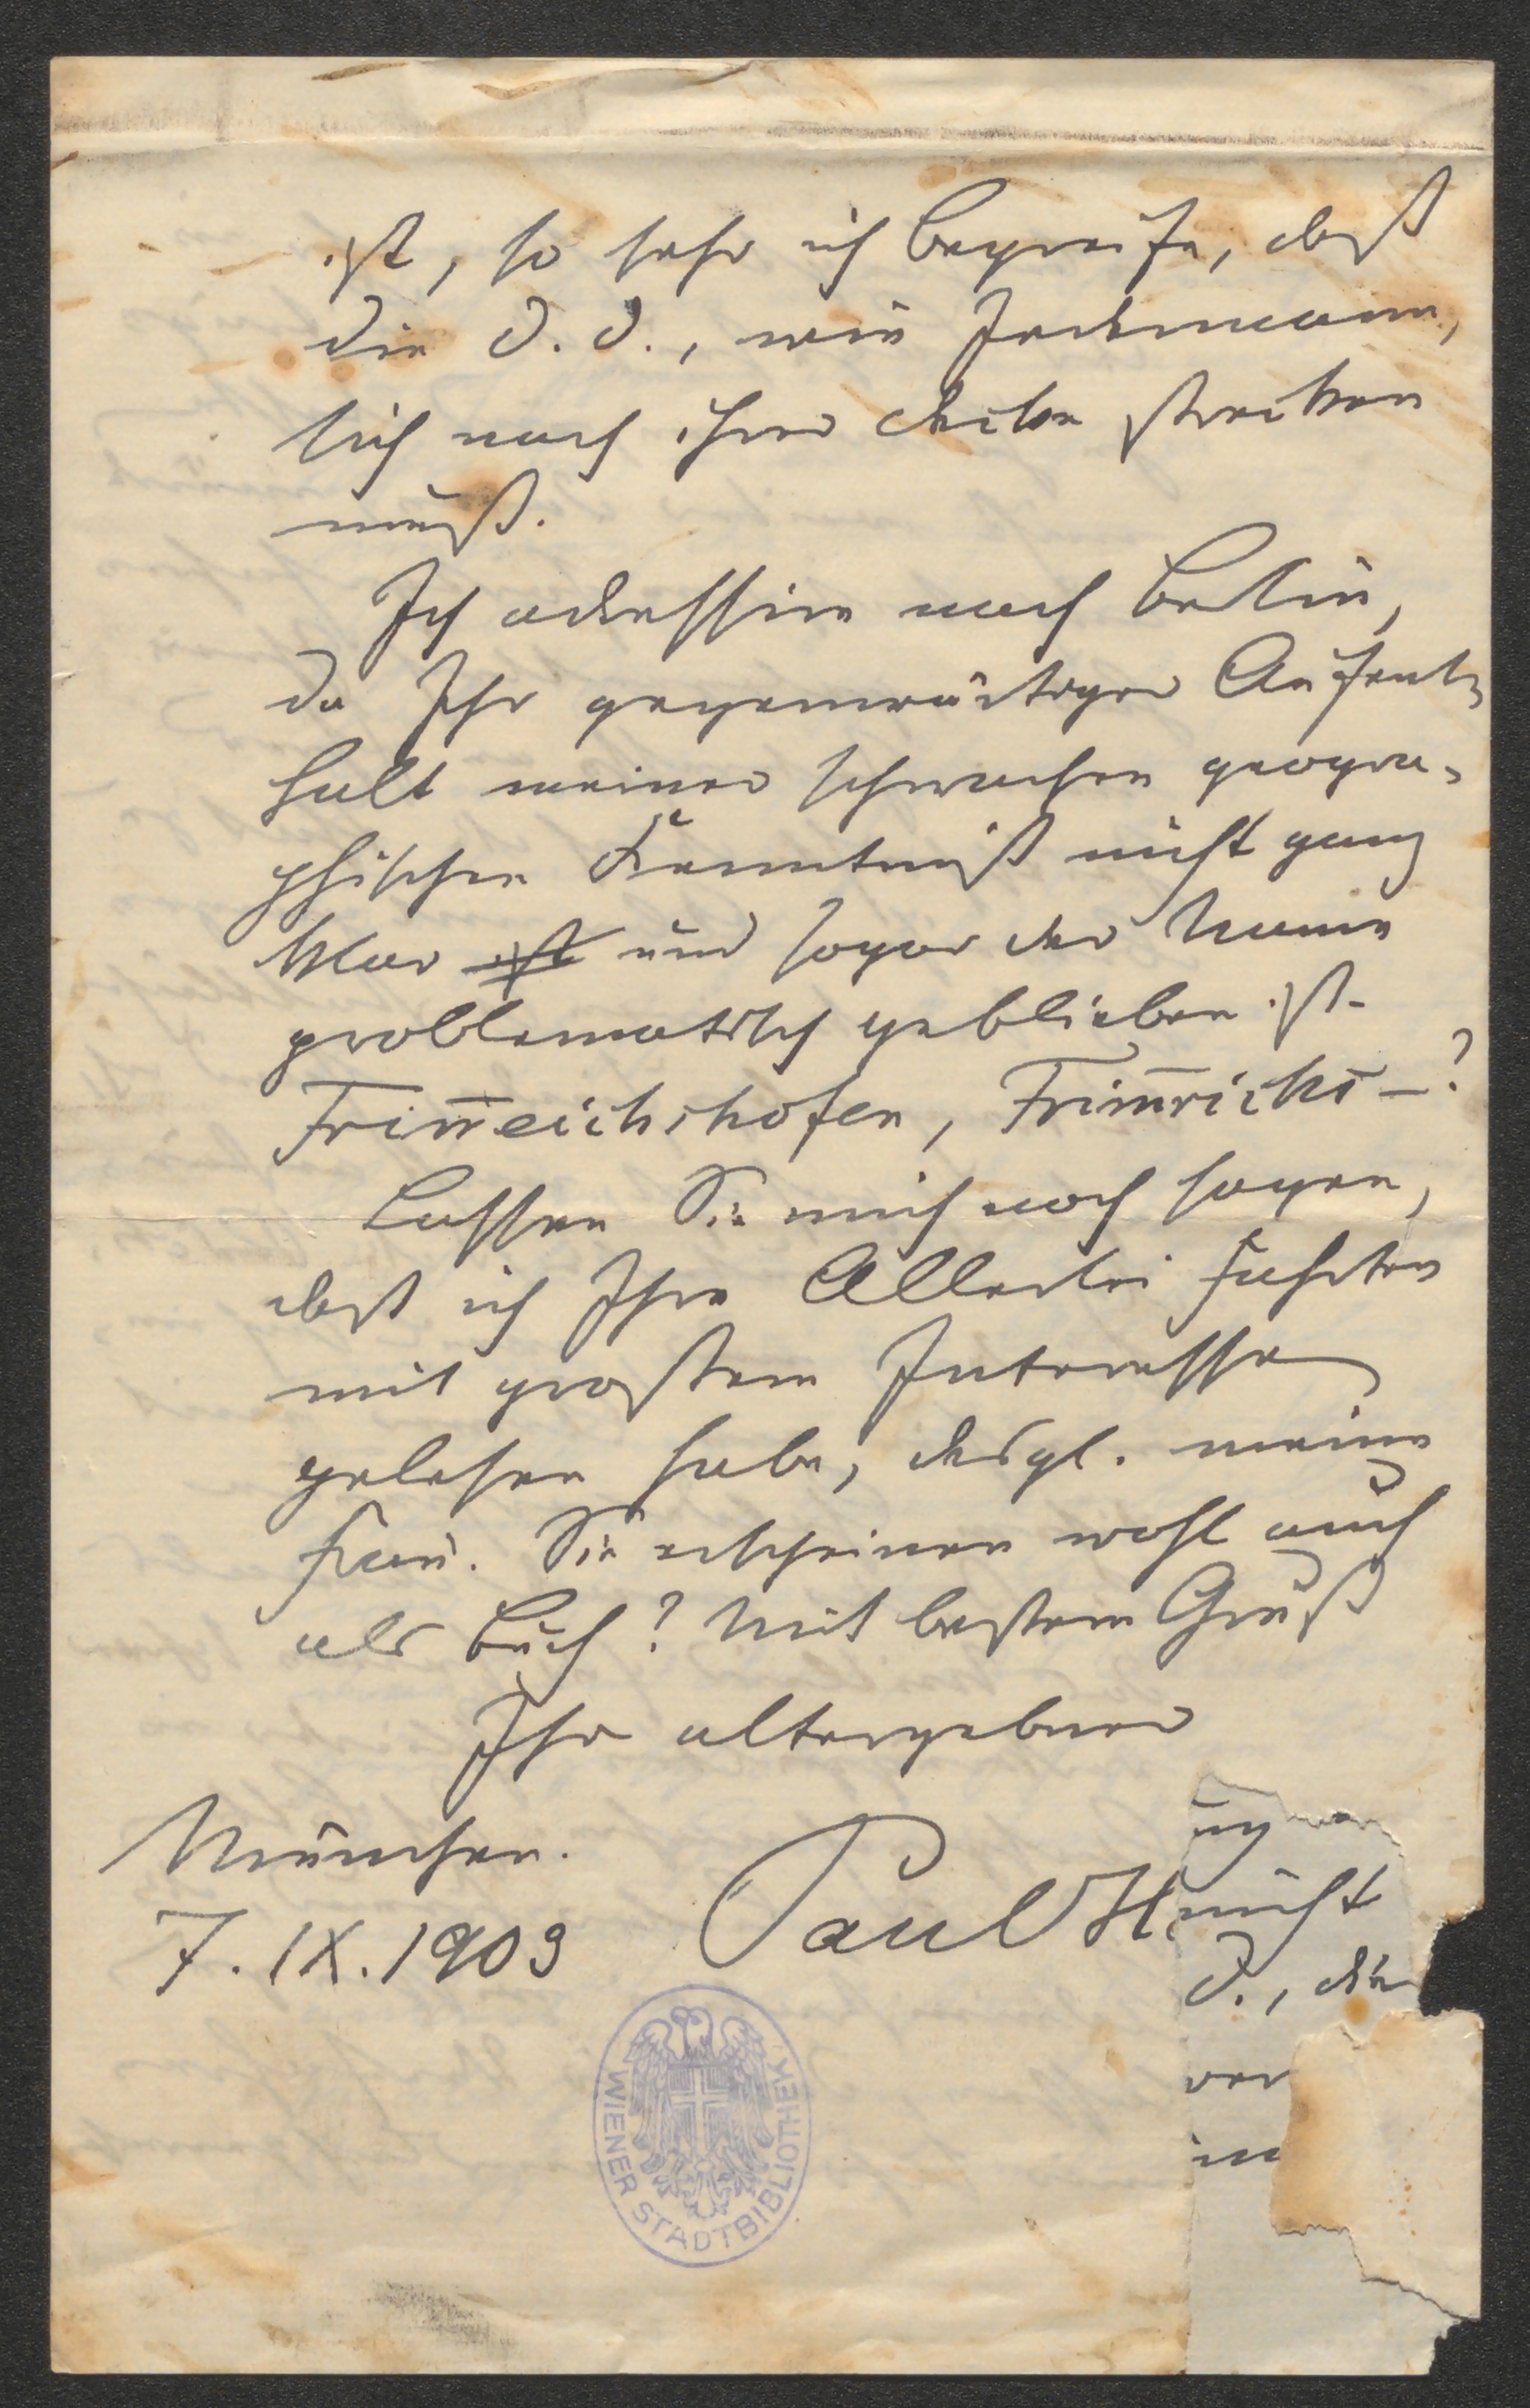 ist, so sehr ich begreife, daß
die D. D., wie Jedermann,
sich nach ihrer Decke strecken
muß.
Ich adressire nach Berlin,
da Ihr gegenwärtiger Aufent-
halt meiner schwachen geogra-
phischen Kenntniß nicht ganz
klar ist und sogar der Name
problematisch geblieben ist.
Frim̅eichshofen, Frim̅richs-?
Lassen Sie mich noch sagen,
daß ich Ihre Allerlei Fahrten
mit großem Interesse
gelesen habe, desgl. meine
Frau. Sie erscheinen wohl auch
als Buch? Mit bestem Gruß
Ihr altergebner
München.
7. IX. 1903
Paul H
nicht
D., die
ver
in
WIENER STADTBIBLIOTHEK